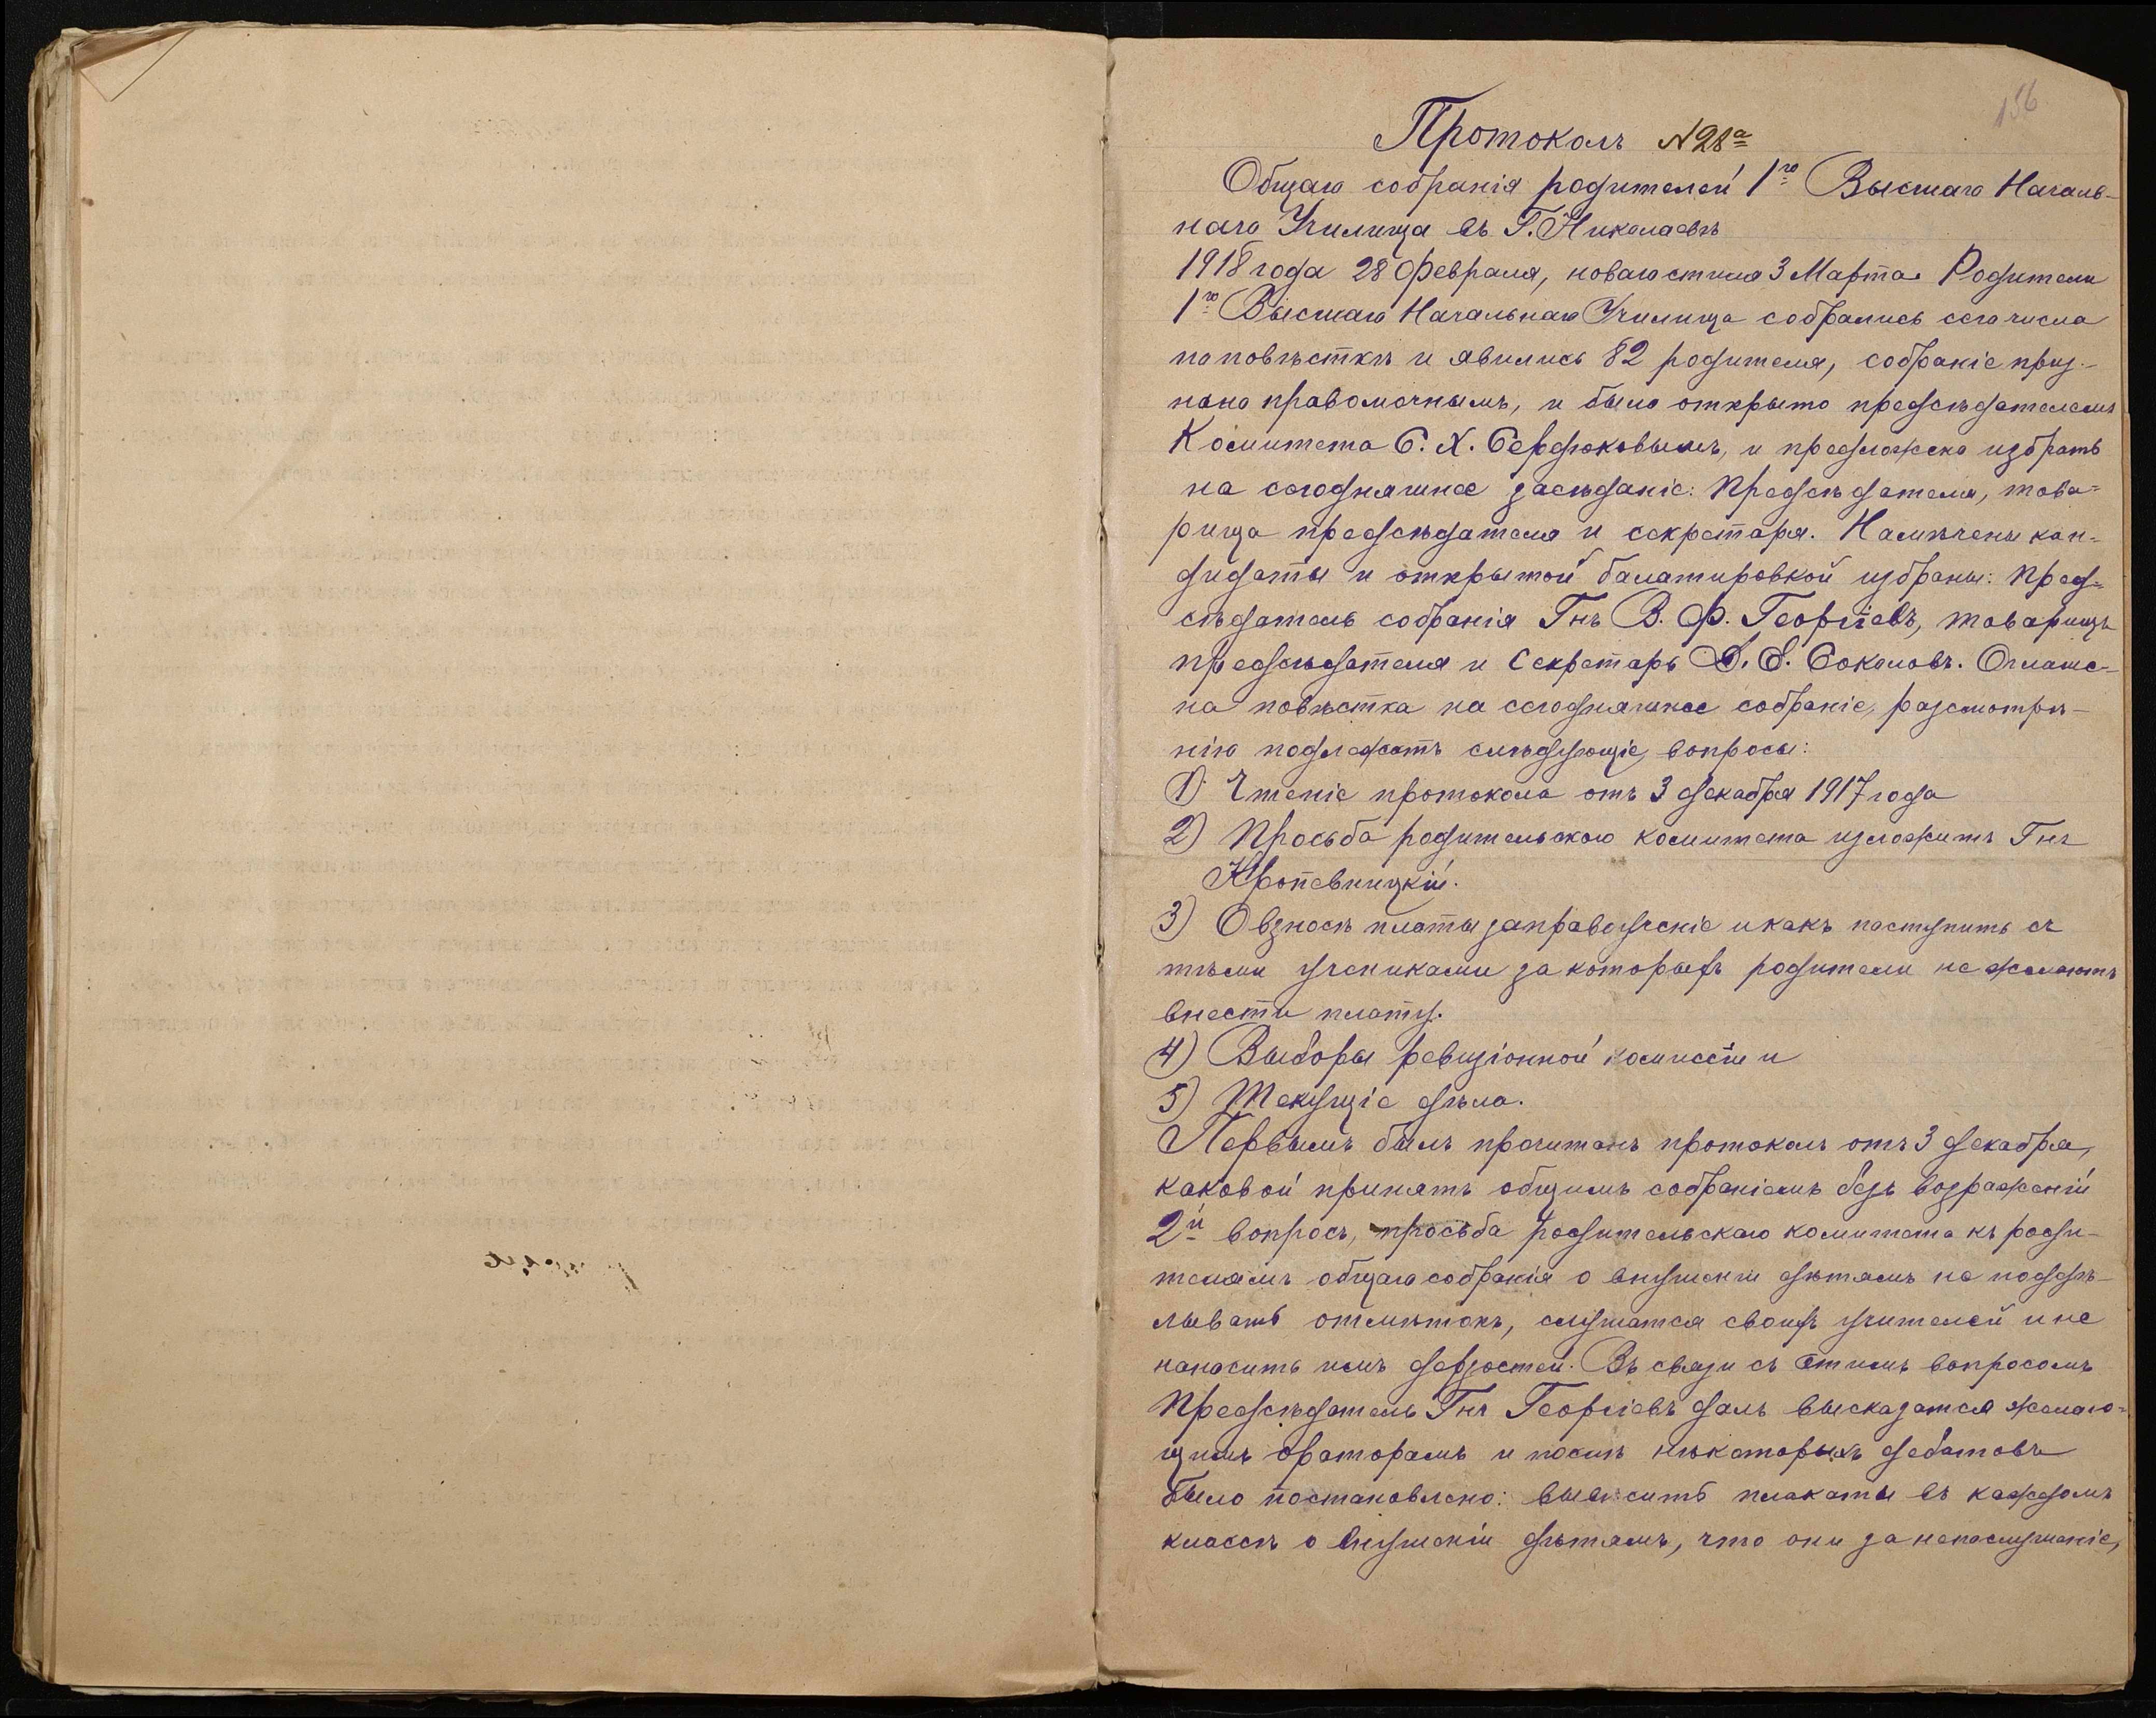 156
Протоколъ №28а
Общаго собранія родителей 1го Высшаго Началь-
наго Училища въ Г. Николаевѣ
1918 года 28 Февраля, новаго стиля 3 Марта. Родители
1го Высшаго Начальнаго Училища собрались сего числа
по повѣсткѣ и явились 82 родителя, собраніе приз-
нано правомочнымъ, и было открыто предсѣдателемъ
Комитета С. Х. Сердюковымъ, и предложено избрать
на сегодняшнее засѣданіе: Предсѣдателя, това-
рища предсѣдателя и секретаря. Намѣчены кан-
дидаты и открытой балатировкой избраны: Пред-
сѣдатель собранія Гнъ В. Ф. Георгіевъ, товарищъ
предсѣдателя и Секретарь Соколовъ. Оглаше-
на повѣстка на сегодняшнее собраніе, разсмотрѣ-
нію подлежатъ слѣдующіе вопросы:
1) Чтеніе протокола отъ 3 декабря 1917 года
2) Просьба родительскаго комитета изложитъ Гнъ
Кропевницкій.
3) О взносѣ платы за правоученіе и какъ поступить съ
тѣми учениками за которыхъ родители не желаютъ
внести плату.
4) Выборы ревизіонной комиссіи и
5) Текущіе дѣла.
Первымъ былъ прочитанъ протоколъ отъ 3 декабря,
каковой принятъ общимъ собраніемъ безъ возраженій
2й вопросъ, просьба родительскаго комитета къ роди-
телямъ общаго собранія о внушеніи дѣтямъ не поддѣ-
лывать отмѣтокъ, слушатся своихъ учителей и не
наносить имъ дерзостей. Въ связи съ этимъ вопросомъ
Предсѣдатель Гнъ Георгіевъ далъ высказатся желаю-
щимъ ораторамъ и послѣ нѣкоторыхъ дебатовъ
было постановлено: вывѣсить плакаты въ каждомъ
классѣ о внушеніи дѣтямъ, что они за непослушаніе,